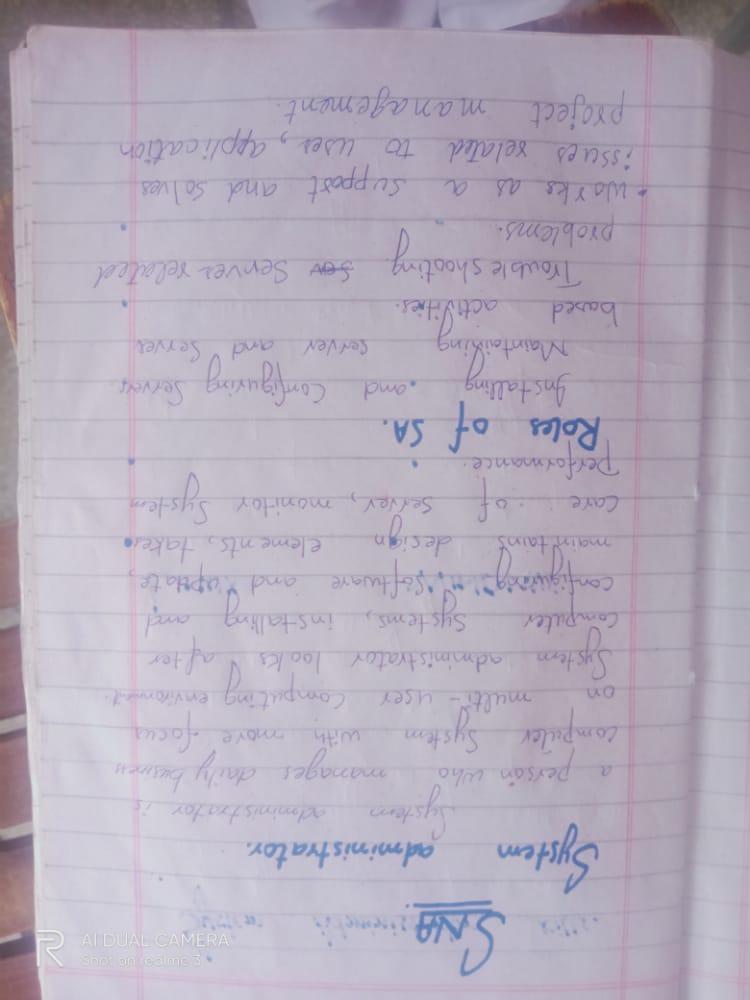 SNA.
System administrator.
System administrator is
a person who manages daily business
computer System with more focus
on multi-user Computing environment.
System administrator looks after
computer systems, installing and
configuring software and update,
maintains design elements, takes
care of server, monitor System
performance.
Roles of SA.
Installing and Configuring Servers.
Maintaining server and Server
based activities.
Trouble shooting Server related
problems.
• Works as a support and solves
issues related to user, application
project management.
AI DUAL CAMERA
Shot on realme 3